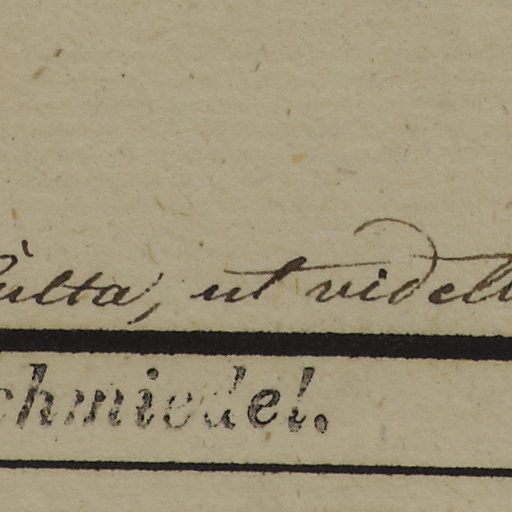 ulta, ut videl
chmiedel.